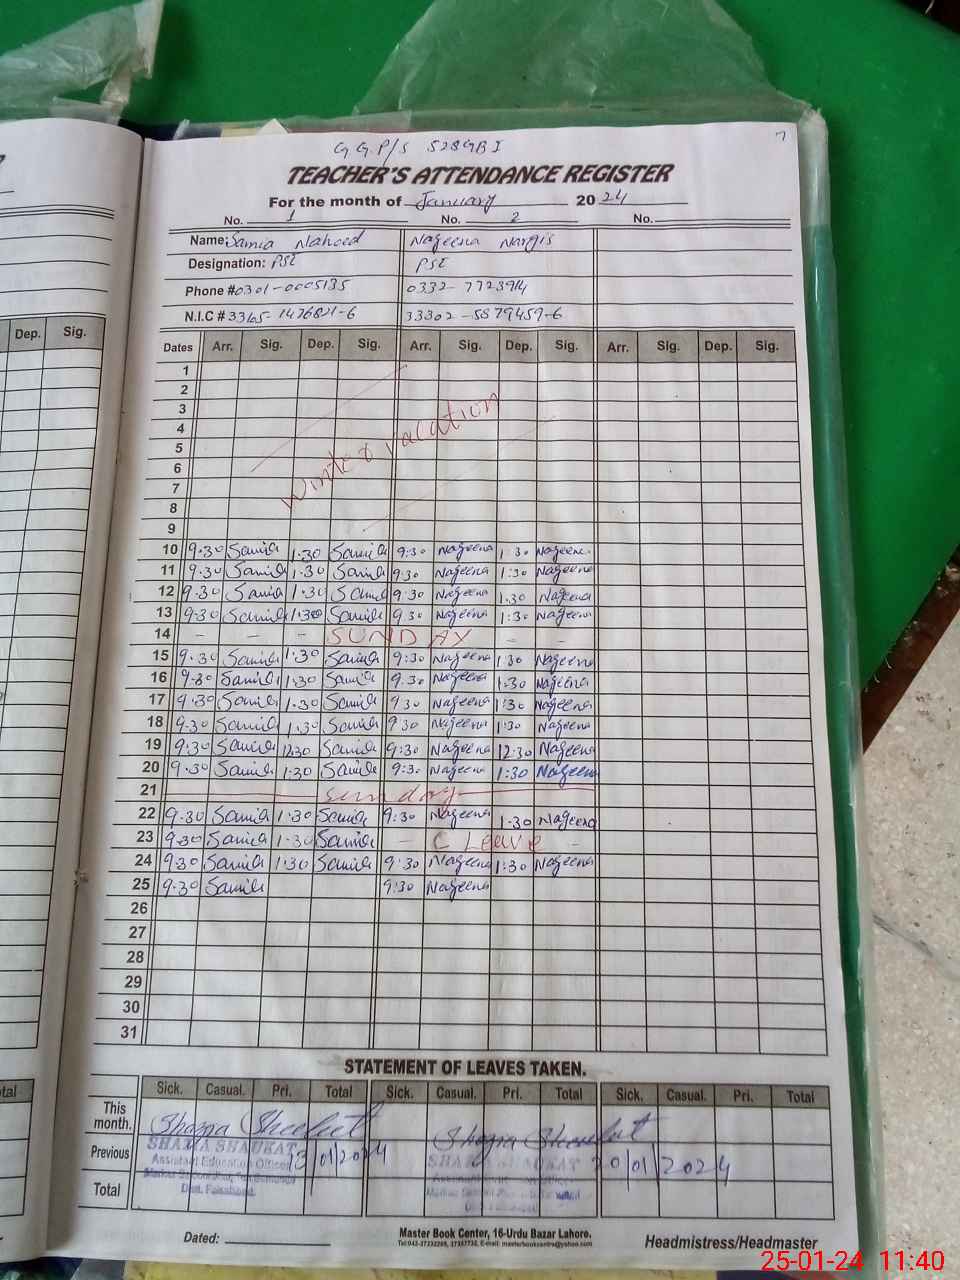 7
G G.P/S 528GB I
TEACHER'S ATTENDANCE REGISTER
For the month of January 2024
No. 1 No. 2 No.
Name: Samia Naheed Nageena Nargis
Designation: PST PST
Phone # 0301-0005135 0332-7723914
N.I.C # 33302-5879457-6
Dep. Sig.
Dates Arr. Sig. Dep. Sig. Arr. Sig. Dep. Sig. Arr. Sig. Dep. Sig.
1
2
3
4
5
6
7
8
9
Winter vacation
10 9.30 Samia 1.30 Samia 9:30 Nageena 1:30 Nageena
11 9.30 Samia 1.30 Samia 9:30 Nageena 1:30 Nageena
12 9.30 Samia 1.30 Samia 9:30 Nageena 1:30 Nageena
13 9.30 Samia 1:30 Samia 9:30 Nageena 1:30 Nageena
14 - - - SUNDAY - -
15 9.30 Samia 1.30 Samia 9:30 Nageena 1:30 Nageena
16 9.30 Samia 1.30 Samia 9:30 Nageena 1:30 Nageena
17 9.30 Samia 1.30 Samia 9:30 Nageena 1:30 Nageena
18 9.30 Samia 1.30 Samia 9:30 Nageena 1:30 Nageena
19 9.30 Samia 12:30 Samia 9:30 Nageena 12:30 Nageena
20 9.30 Samia 1:30 Samia 9:30 Nageena 1:30 Nageena
21 sunday
22 9.30 Samia 1:30 Samia 9:30 Nageena 1:30 Nageena
23 9.30 Samia 1.30 Samia - C Leave -
24 9.30 Samia 1:30 Samia 9:30 Nageena 1:30 Nageena
25 9.30 Samia 9:30 Nageena
26
27
28
29
30
31
STATEMENT OF LEAVES TAKEN.
Sick. Casual. Pri. Total Sick. Casual. Pri. Total Sick. Casual. Pri. Total
This month.
Previous
Total
SHAZIA SHAUKAT
Assistant Education Officer
Distt. Faisalabad.
SHAZIA SHAUKAT 20/01/2024
Dated:
Master Book Center, 16-Urdu Bazar Lahore.
Headmistress/Headmaster
25-01-24 11:40